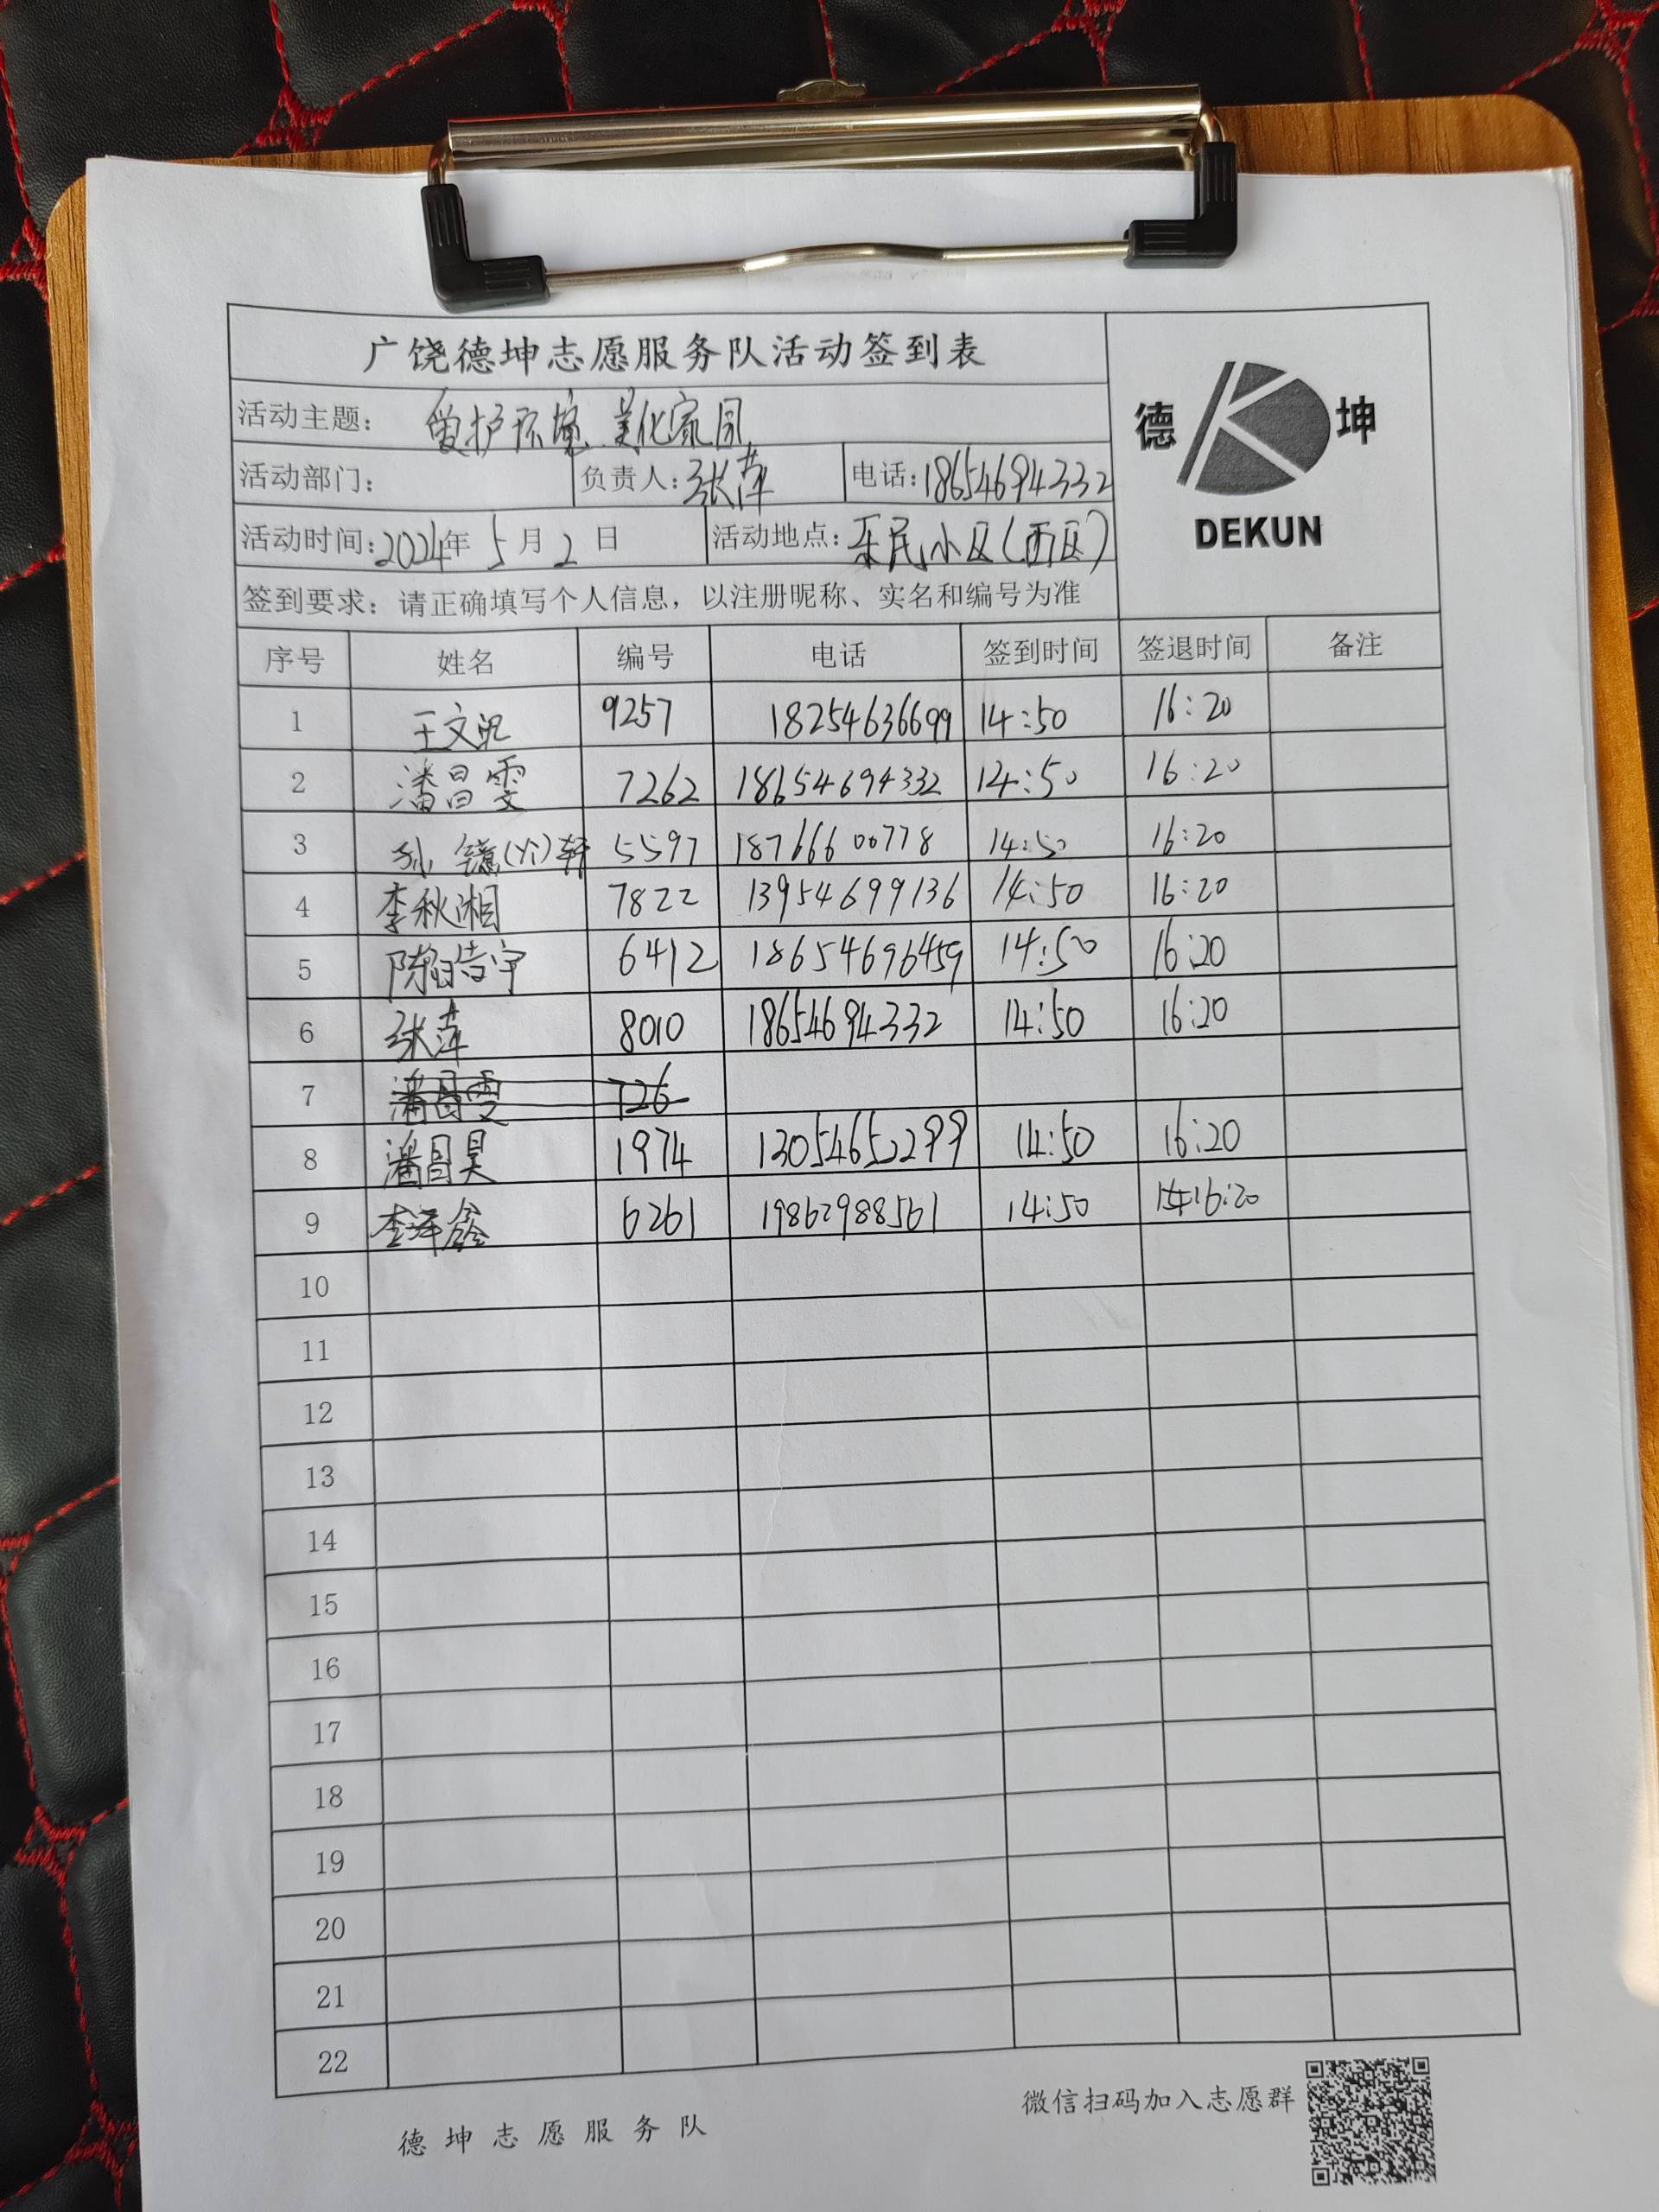 广饶德坤志愿服务队活动签到表
德 坤
DEKUN
活动主题: 爱护环境 美化家园
活动部门: 负责人: 张萍 电话: 18654694332
活动时间: 2024年 5月 2日 活动地点: 乐民小区(西区)
签到要求: 请正确填写个人信息, 以注册昵称、实名和编号为准
序号 姓名 编号 电话 签到时间 签退时间 备注
1 王文 9257 18254636699 14:50 16:20
2 潘昌雯 7262 18654694332 14:50 16:20
3 孙 (YI)轩 5597 18766600778 14:50 16:20
4 李秋湘 7822 13954699136 14:50 16:20
5 陈宇 6412 18654696459 14:50 16:20
6 张萍 8010 18654694332 14:50 16:20
7 潘昌雯 726
8 潘昌昊 1974 13054652299 14:50 16:20
9 李泽鑫 6261 19862988561 14:50 16:20
10
11
12
13
14
15
16
17
18
19
20
21
22
微信扫码加入志愿群
德坤志愿服务队